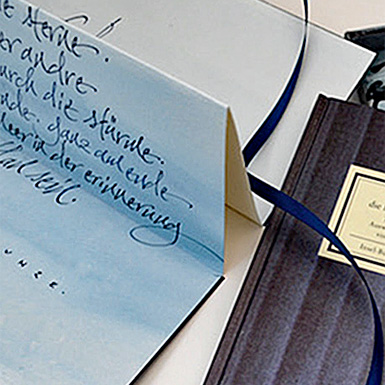 e sterne.
er andre
urch die stürme.
nde. ganz am ende
leer in der erinnerung
U N Z E .
die
Insel-B